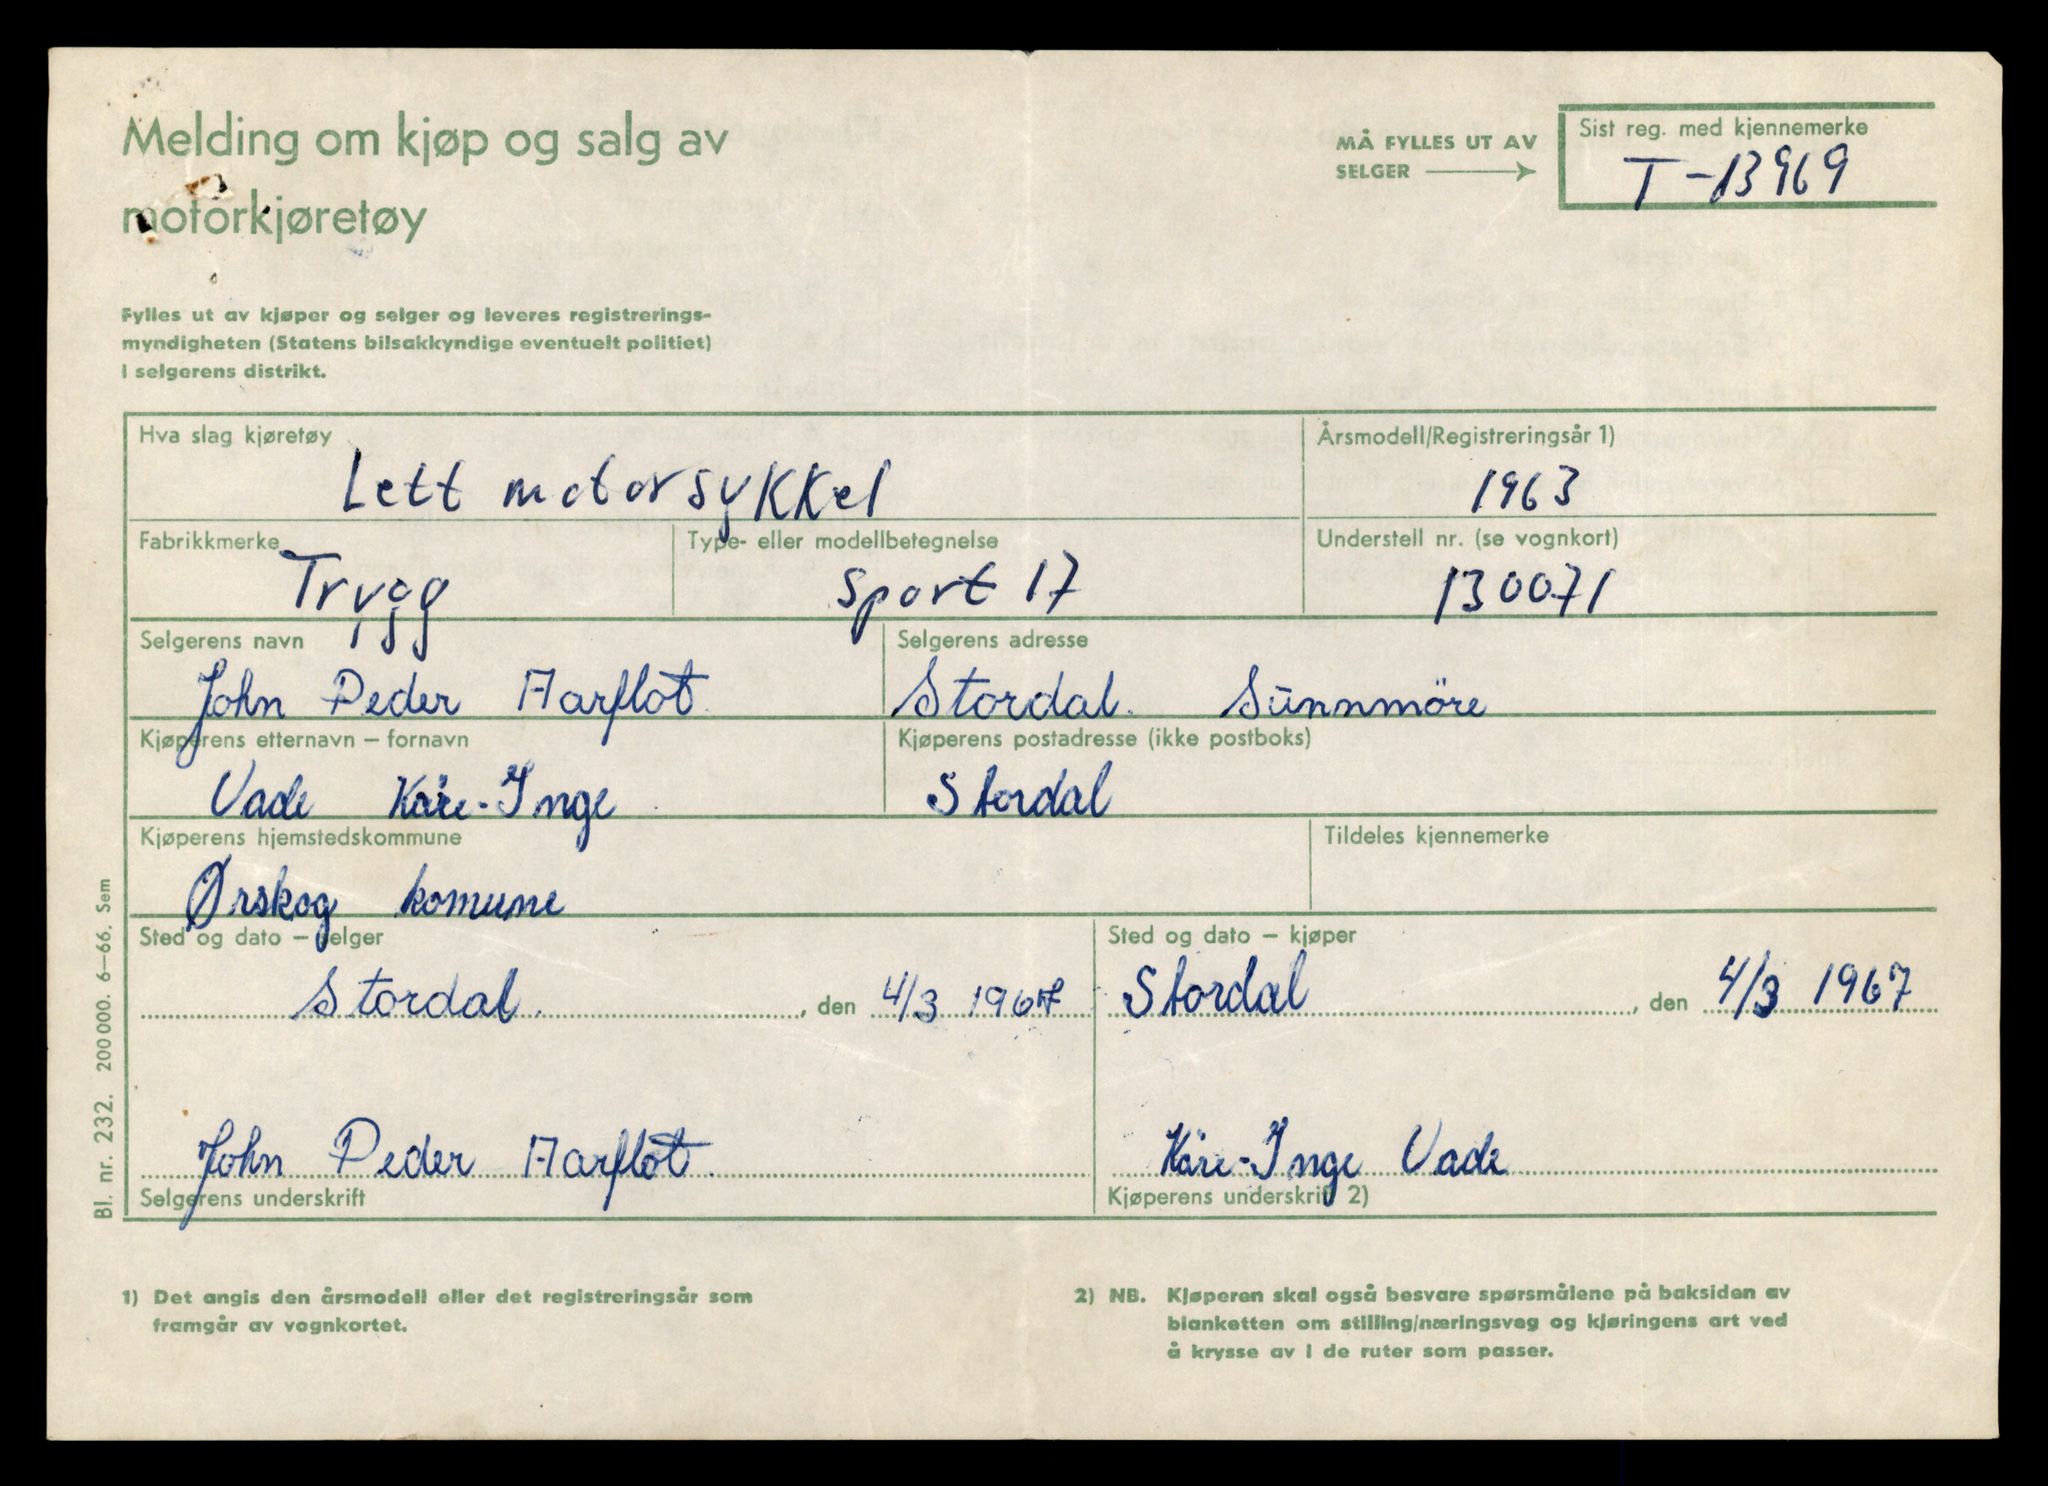 Melding om kjøp og salg av
motorkjøretøy
MÅ FYLLES UT AV
SELGER
Sist reg. med kjennemerke
T-13969
Fylles ut av kjøper og selger og leveres registrerings-
myndigheten (Statens bilsakkyndige eventuelt politiet)
i selgerens distrikt.
Hva slag kjøretøy
Lett motorsykkel
Årsmodell/Registreringsår 1)
1963
Fabrikkmerke
Trygg
Type- eller modellbetegnelse
Sport 17
Understell nr. (se vognkort)
130071
Selgerens navn
John Peder Aarflot
Selgerens adresse
Stordal. Sunnmöre
Kjøperens etternavn – fornavn
Vade Kåre-Inge
Kjøperens postadresse (ikke postboks)
Stordal
Kjøperens hjemstedskommune
Ørskog komune
Tildeles kjennemerke
Sted og dato – selger
Stordal. , den 4/3 1967
Sted og dato – kjøper
Stordal , den 4/3 1967
John Peder Aarflot.
Selgerens underskrift
Kåre-Inge Vade
Kjøperens underskrift 2)
Bl. nr. 232. 200 000. 6–66. Sem
1) Det angis den årsmodell eller det registreringsår som
framgår av vognkortet.
2) NB. Kjøperen skal også besvare spørsmålene på baksiden av
blanketten om stilling/næringsveg og kjøringens art ved
å krysse av i de ruter som passer.